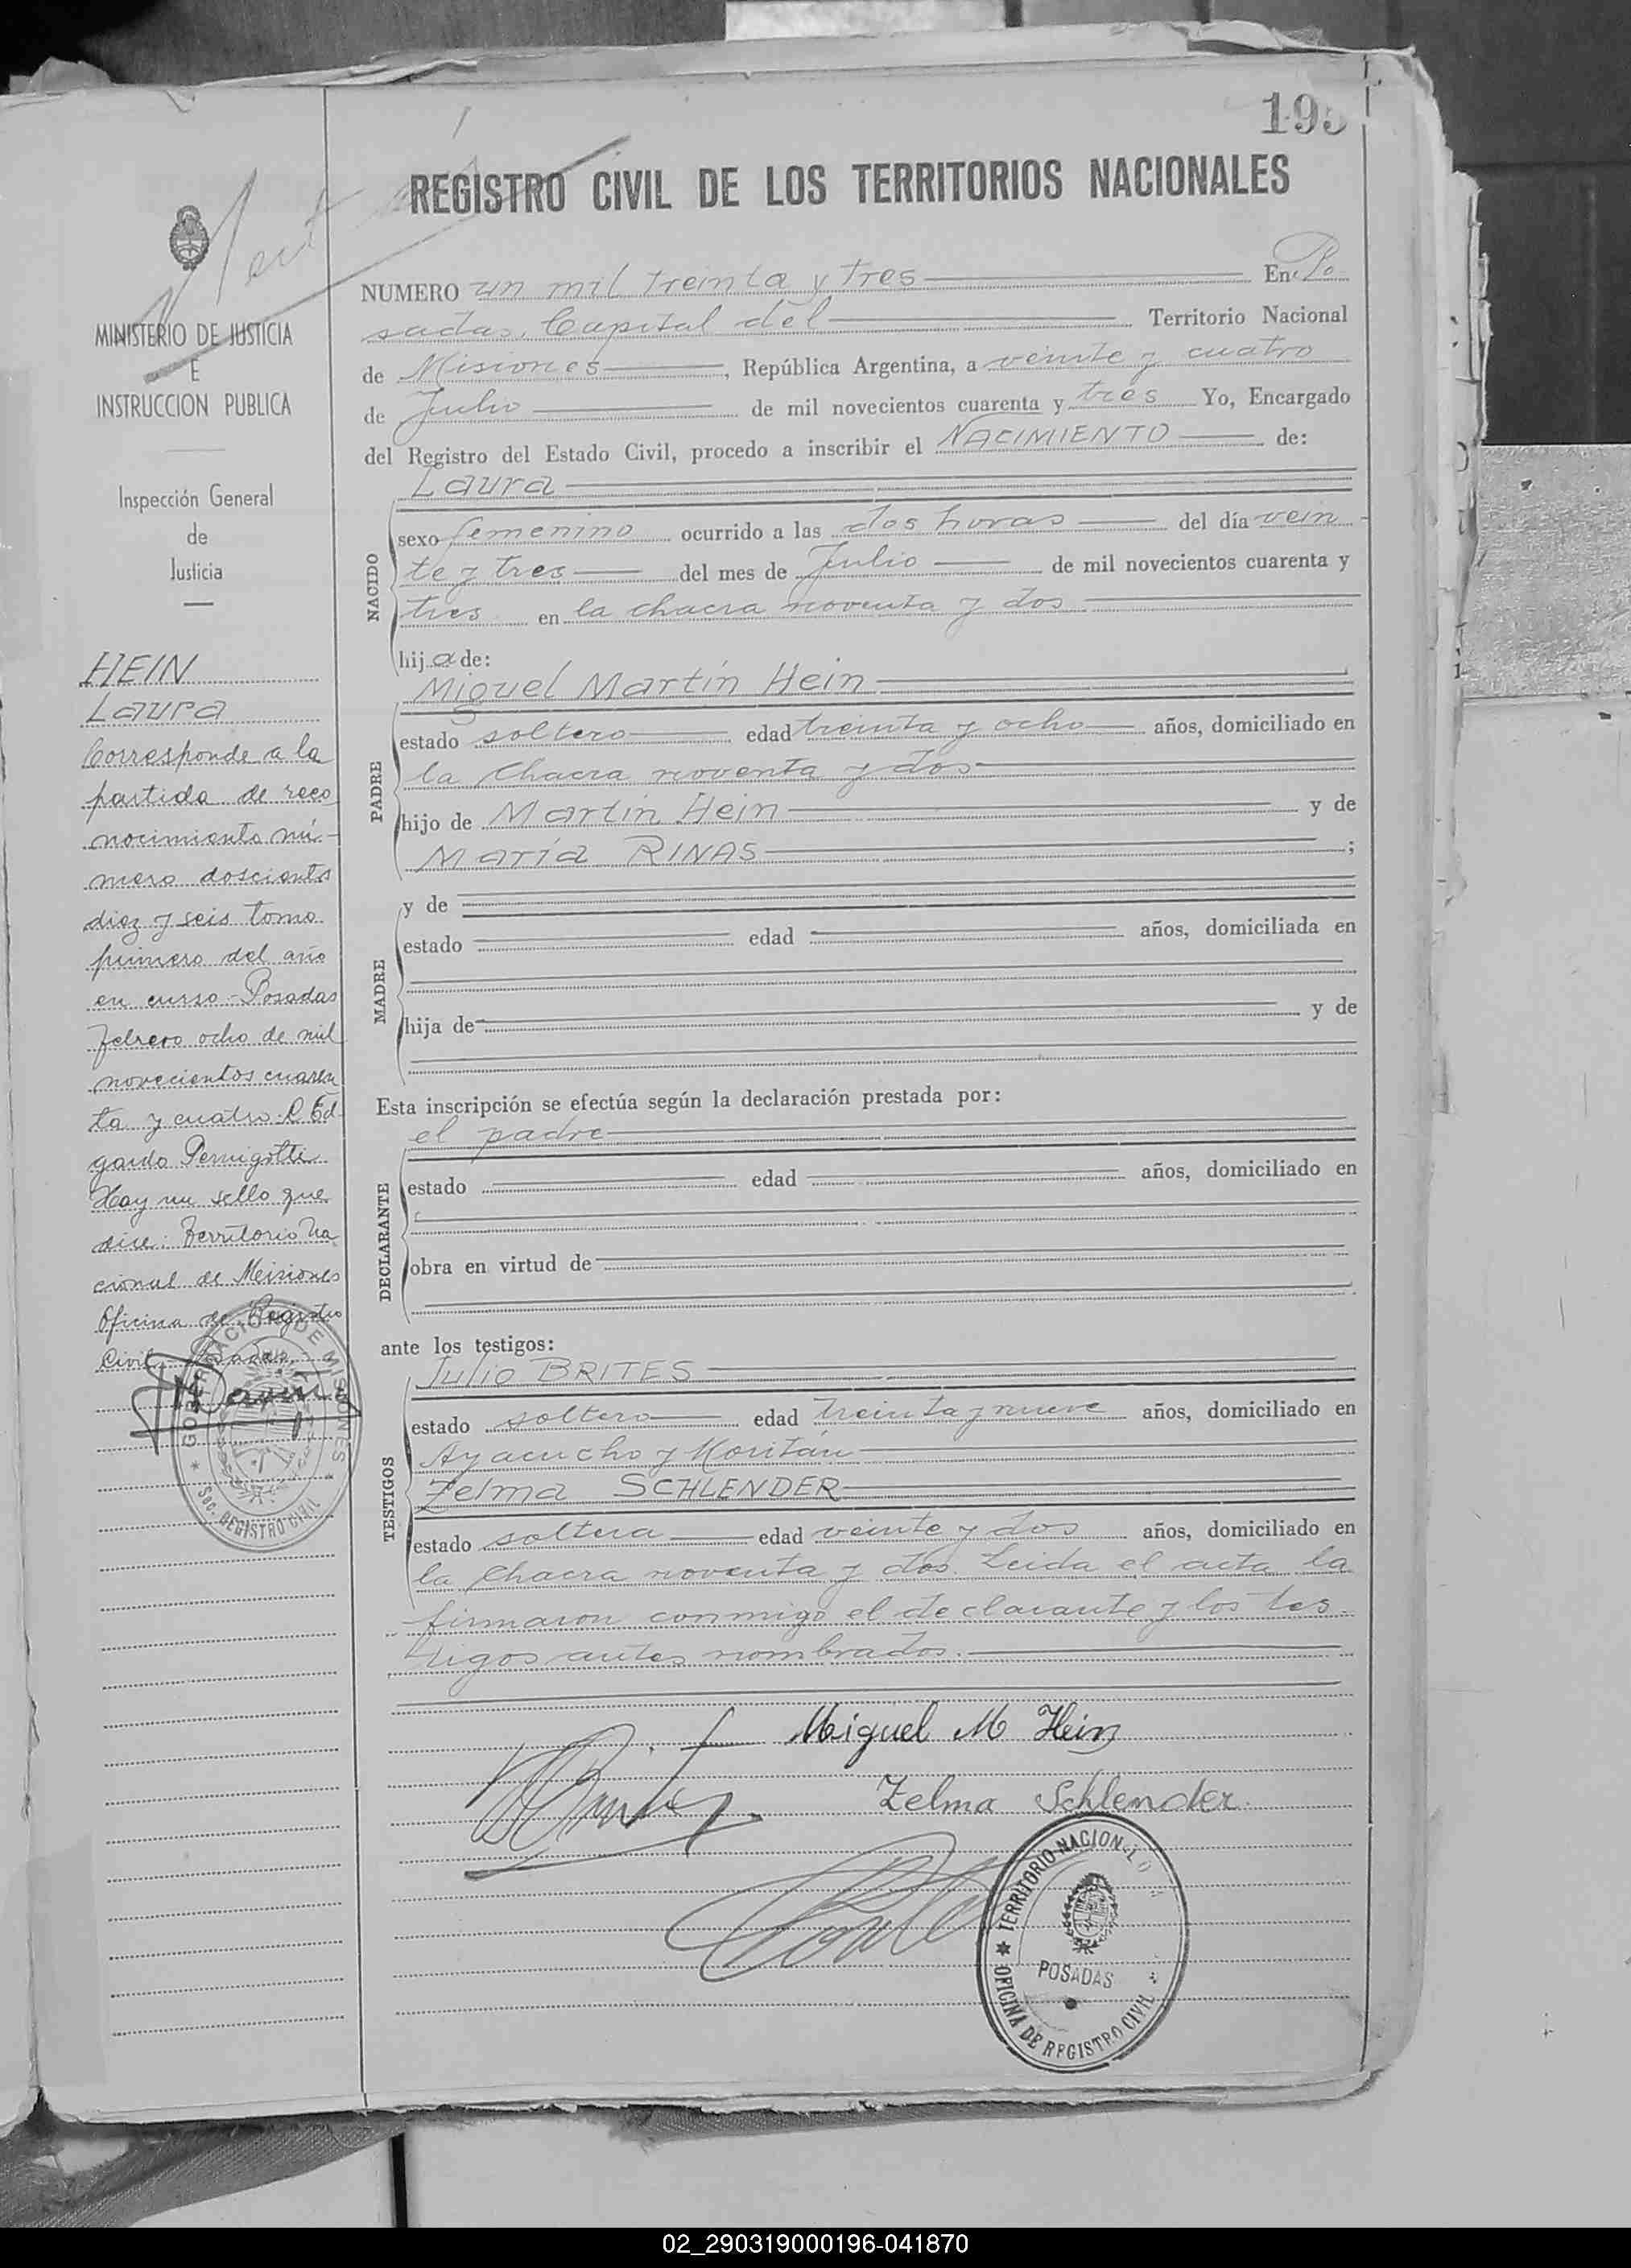 195
REGISTRO CIVIL DE LOS TERRITORIOS NACIONALES
MINISTERIO DE JUSTICIA
E
INSTRUCCION PUBLICA
Inspección General
de
Justicia
HEIN
Laura
Corresponde a la
partida de reco
nocimiento nú-
mero doscientos
diez y seis tomo
primero del año
en curso - Posadas
febrero ocho de mil
novecientos cuaren
ta y cuatro. R. Ed
gardo Pernigotti
Hay un sello que
dice: Territorio Na
cional de Misiones
Oficina de Registro
Civil Posadas
GOBERNACION DE MISIONES
Sec. REGISTRO CIVIL
NUMERO un mil treinta y tres En Po
sadas, Capital del Territorio Nacional
de Misiones, República Argentina, a veinte y cuatro
de Julio de mil novecientos cuarenta y tres Yo, Encargado
del Registro del Estado Civil, procedo a inscribir el NACIMIENTO de:
Laura
NACIDO
sexo femenino ocurrido a las dos horas del día vein
te y tres del mes de Julio de mil novecientos cuarenta y
tres en la chacra noventa y dos
hija de:
Miguel Martín Hein
PADRE
estado soltero edad treinta y ocho años, domiciliado en
la Chacra noventa y dos
hijo de Martín Hein y de
María RINAS ;
MADRE
y de
estado edad años, domiciliada en
hija de y de
Esta inscripción se efectúa según la declaración prestada por:
el padre
DECLARANTE
estado edad años, domiciliado en
obra en virtud de
ante los testigos:
Julio BRITES
TESTIGOS
estado soltero edad treinta y nueve años, domiciliado en
Ayacucho y Moritán
Zelma SCHLENDER
estado soltera edad veinte y dos años, domiciliado en
la Chacra noventa y dos. Leida el acta la
firmaron conmigo el declarante y los tes-
tigos antes nombrados.
Miguel M Hein
Zelma Schlender
TERRITORIO NACIONAL
POSADAS
OFICINA DE REGISTRO CIVIL
02_290319000196-041870